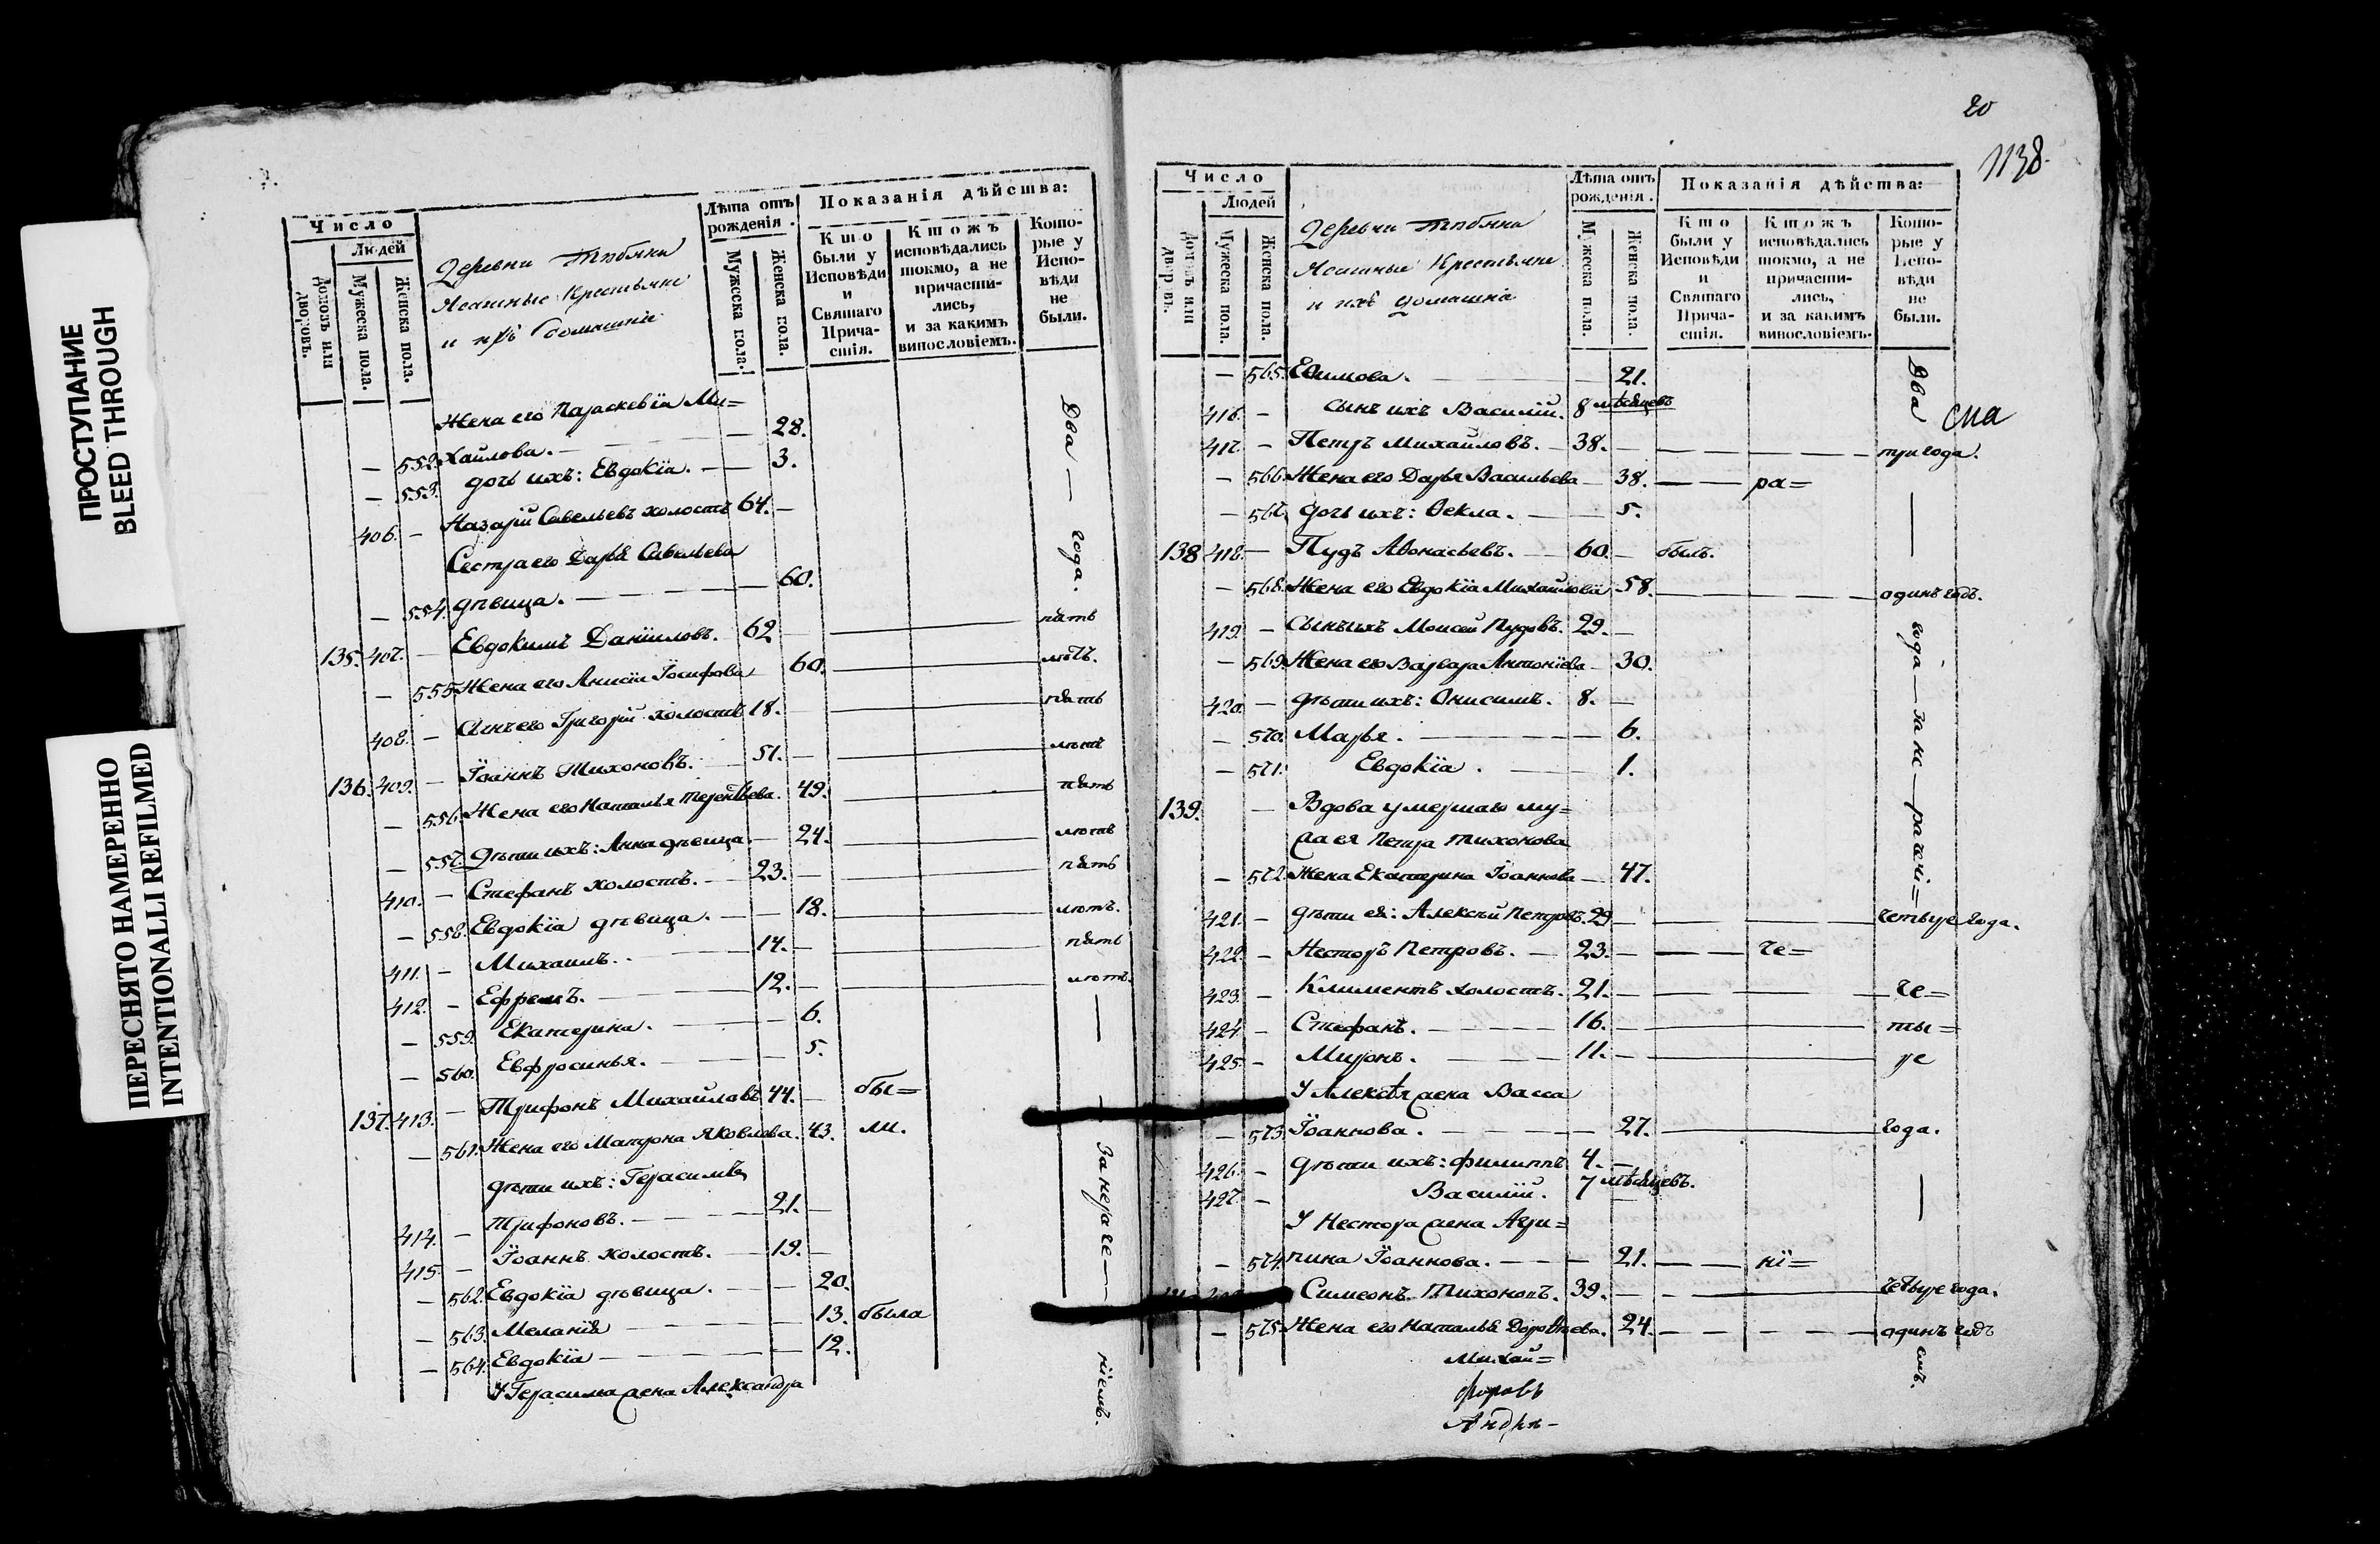 ПРОСТУПАНИЕ
BLEED THROUGH
ПЕРЕСНЯТО НАМЕРЕННО
INTENTIONALLI REFILMED
Число
Людей
Домовъ или дворовъ.
Мужеска пола.
Женска пола.
Деревни
Ясашные Крестьяне
и ихъ домашніе
Лѣта отъ рожденія.
Мужеска пола.
Женска пола.
Показанія дѣйства:
Кто были у Исповѣди и Святаго Причастія.
Ктожъ исповѣдались токмо, а не причастились, и за какимъ винословіемъ.
Которые у Исповѣди не были.
Жена его Параскевія Ми=
— 552. хайлова. — 28.
— 553. дочь ихъ: Евдокіа. — 3.
406. — Назарій Савельевъ холостъ 64. —
Сестра его Дарья Савельева
— 554. дѣвица. — 60.
135. 407. — Евдокимъ Даніиловъ. 62. — пять
— 555. Жена его Анисіа Іосифова 60. — лѣтъ.
408. — Сынъ его Григорій холостъ 18. — пять
136. 409. — Іоаннъ Тихоновъ. 51. — лѣтъ
— 556. Жена его Наталья Терентьева. 49. — пять
— 557. Дѣти ихъ: Анна дѣвица. — 24. — лѣтъ
410. — Стефанъ холостъ. — 23. — пять
— 558. Евдокіа дѣвица. — 18. — лѣтъ.
411. — Михаилъ. — 14. — пять
412. — Ефремъ. — 12. — лѣтъ.
— 559. Екатерина. — 6.
— 560. Евфросинья. — 5.
137. 413. — Трифонъ Михайловъ 44. — бы=
— 561. Жена его Матрона Яковлева. 43. ли.
дѣти ихъ: Герасимъ
414. — Трифоновъ. — 21. —
415. — Іоаннъ холостъ. — 19. —
— 562. Евдокіа дѣвица. — 20.
— 563. Меланія — 13. была
— 564. Евдокіа — 12.
У Герасима жена Александра
Два — года.
За нераче—
ніемъ.
20
1138.
Число
Людей
Домовъ или дворовъ.
Мужеска пола.
Женска пола.
Деревни
Ясашные Крестьяне
и ихъ домашніе
Лѣта отъ рожденія.
Мужеска пола.
Женска пола.
Показанія дѣйства:
Кто были у Исповѣди и Святаго Причастія.
Ктожъ исповѣдались токмо, а не причастились, и за какимъ винословіемъ.
Которые у Исповѣди не были.
— 565. Ефимова. — 21.
416. — сынъ ихъ Василій. 8 мѣсяцевъ
417. — Петръ Михайловъ. — 38. — три года.
— 566. Жена его Дарья Васильева — 38. — ра=
— 567. Дочь ихъ: Ѳекла. — 5.
138 418. — Пудъ Аѳонасьевъ. — 60. — былъ.
— 568. Жена его Евдокіа Михайлова 58. — одинъ годъ.
419. — Сынъ ихъ Моисей Пудовъ. 29. —
— 569. Жена его Варвара Антоніева — 30.
420. — дѣти ихъ: Онисимъ. 8. —
— 570. Марья. — 6.
— 571. Евдокіа. — 1.
139. — Вдова умершаго му=
жа ея Петра Тихонова
— 572. Жена Екатерина Іоаннова — 47.
421. — дѣти ея: Алексѣй Петровъ. 29 — четыре года.
422. — Несторъ Петровъ. — 23. — че=
423. — Климентъ холостъ. 21. — че=
424. — Стефанъ. — 16. — ты=
425. — Миронъ. — 11. — ре
У Алексѣя жена Васса
— 573. Іоаннова. — 27. — года.
426. — дѣти ихъ: Филиппъ 4. —
427. — Василій. 7 мѣсяцевъ.
У Нестора жена Агри=
— 574. пина Іоаннова. — 21. — ні=
Симеонъ Тихоновъ. 39. — четыре года.
— 575. Жена его Наталья Дороѳеева. 24. — одинъ годъ
Михай=
Андре-
Два
года — за не — рачені=
емъ.